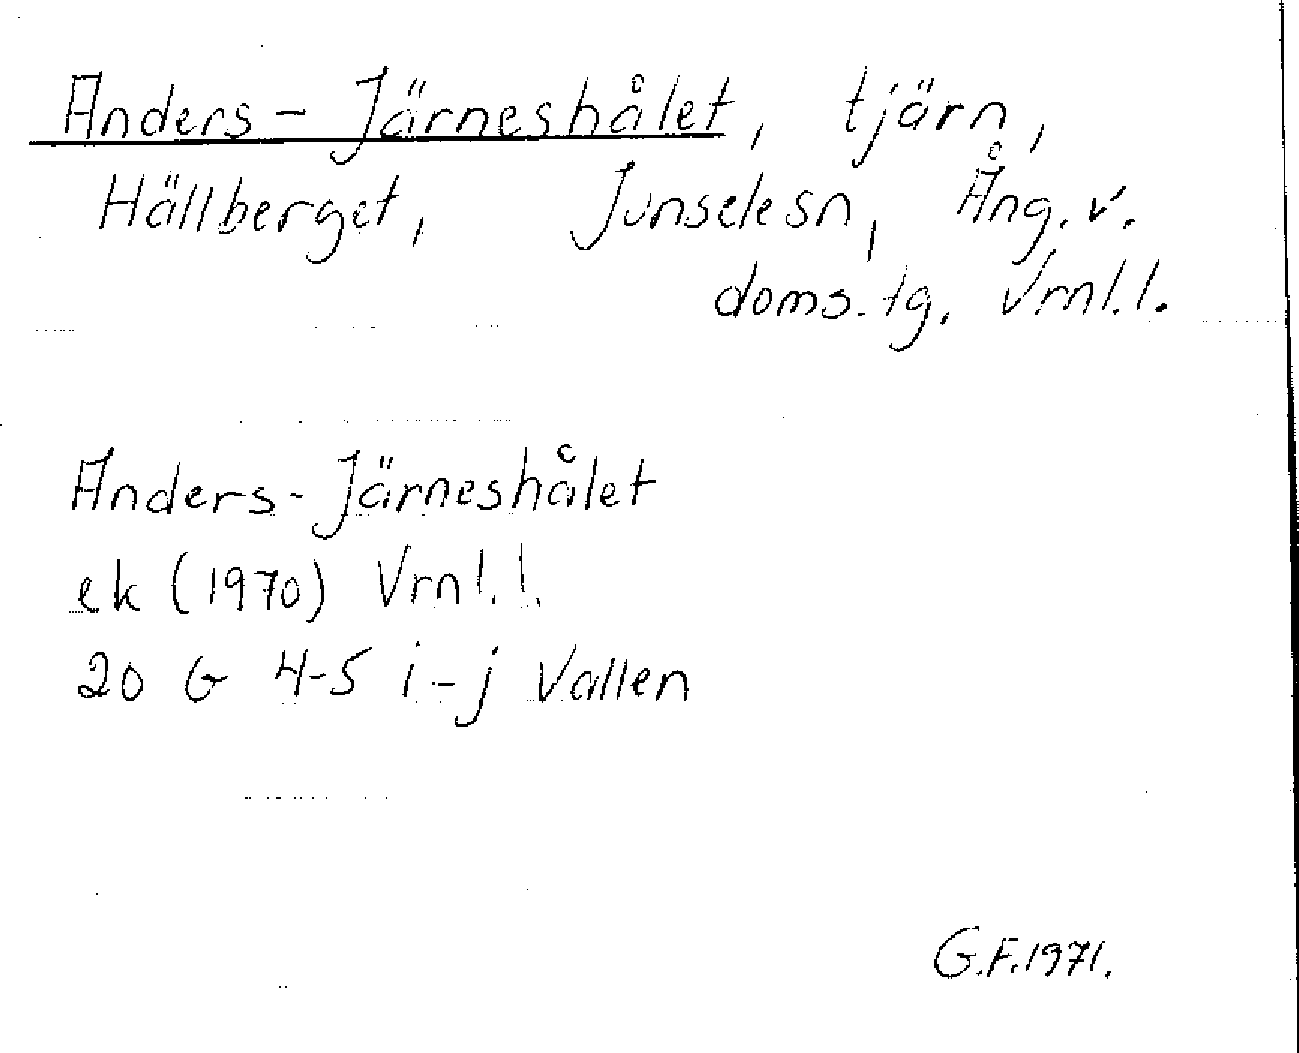 Anders-Järneshålet, tjärn,
Hällberget, Junsele sn, Ång. v.
doms. tg. Vrnl. l.
Anders-Järneshålet
ek (1970) Vrnl. l.
20 G 4-5 i-j Vallen
G.F. 1971.